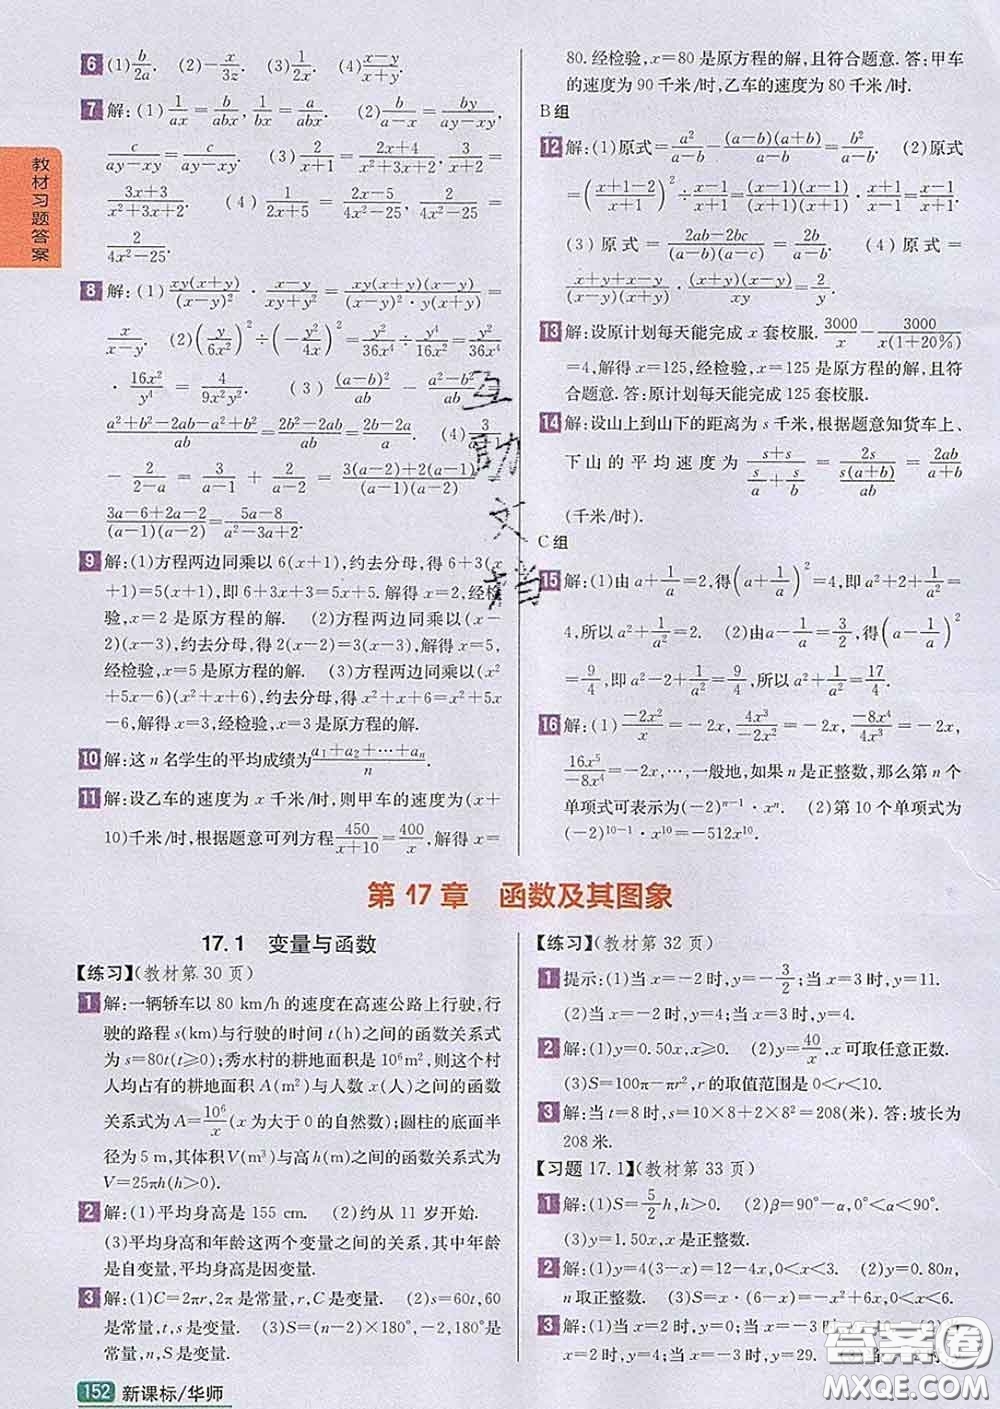 教材习题答案
6 (1) b/2a. (2) -x/3z. (3) 1/2x. (4) (x-y)/(x+y).
7 解:(1) 1/ax = b/abx, 1/bx = a/abx. (2) b/(a-x) = by/(ay-xy),
c/(ay-xy) = c/(ay-xy). (3) 2/(x+1) = (2x+4)/(x²+3x+2), 3/(x+2) =
(3x+3)/(x²+3x+2). (4) 1/(2x+5) = (2x-5)/(4x²-25),
2/(4x²-25).
8 解:(1) xy(x+y)/(x-y)² · (x-y)/(xy+y²) = xy(x+y)(x-y)/((x-y)²·y(x+y)) =
x/(x-y). (2) (y/6x²)² ÷ (-y²/4x)² = y²/36x⁴ ÷ y⁴/16x² = y²/36x⁴
· 16x²/y⁴ = 4/9x²y². (3) (a-b)²/ab - (a²-b²)/ab =
(a²+b²-2ab-a²+b²)/ab = (2b²-2ab)/ab = (2b-2a)/a. (4)
- 2/(2-a) = 3/(a-1) + 2/(a-2) = (3(a-2)+2(a-1))/((a-1)(a-2)) =
(3a-6+2a-2)/((a-1)(a-2)) = (5a-8)/(a²-3a+2).
9 解:(1)方程两边同乘以 6(x+1),约去分母,得 6+3(x
+1)=5(x+1),即 6+3x+3=5x+5. 解得 x=2,经检
验,x=2 是原方程的解. (2)方程两边同乘以(x-
2)(x-3),约去分母,得 2(x-2)=3(x-3),解得 x=5,
经检验,x=5 是原方程的解. (3)方程两边同乘以(x²
+5x-6)(x²+x+6),约去分母,得 x²+x+6=x²+5x
-6,解得 x=3,经检验,x=3 是原方程的解.
10 解:这 n 名学生的平均成绩为 (a₁+a₂+…+aₙ)/n.
11 解:设乙车的速度为 x 千米/时,则甲车的速度为(x+
10)千米/时,根据题意可列方程 450/(x+10) = 400/x,解得 x=
80. 经检验,x=80 是原方程的解,且符合题意. 答:甲车
的速度为 90 千米/时,乙车的速度为 80 千米/时.
B 组
12 解:(1)原式= a²/(a-b) - (a-b)(a+b)/(a-b) = b²/(a-b). (2)原式
= ((x+1-2)/(x+1))² ÷ (x-1)(x-1)/((x+1)(x-1)) = (x-1)/(x+1) ÷ (x+1)/(x-1)
(3)原式= (2ab-2bc)/((a-b)(a-c)) = 2b/(a-b). (4)原式=
(x+y+x-y)/((x+y)(x-y)) · (x+y)(x-y)/xy = 2/y.
13 解:设原计划每天能完成 x 套校服. 3000/x - 3000/(x(1+20%))
=4,解得 x=125,经检验,x=125 是原方程的解,且符
合题意. 答:原计划每天能完成 125 套校服.
14 解:设山上到山下的距离为 s 千米,根据题意知货车上、
下山的平均速度为 (s+s)/(s/a+s/b) = 2s/(s(a+b)/ab) = 2ab/(a+b)
(千米/时).
C 组
15 解:(1)由 a+1/a=2,得(a+1/a)²=4,即 a²+2+1/a²=
4,所以 a²+1/a²=2. (2)由 a-1/a=3/2,得(a-1/a)²
=9/4,即 a²-2+1/a²=9/4,所以 a²+1/a²=17/4.
16 解:(1) -2x²/x=-2x, 4x³/-2x²=-2x, -8x⁴/4x³=-2x,
16x⁵/-8x⁴=-2x,…,一般地,如果 n 是正整数,那么第 n 个
单项式可表示为(-2)ⁿ⁻¹·xⁿ. (2)第 10 个单项式为
(-2)¹⁰⁻¹·x¹⁰=-512x¹⁰.
第 17 章 函数及其图象
17.1 变量与函数
【练习】(教材第 30 页)
1 解:一辆轿车以 80 km/h 的速度在高速公路上行驶,行
驶的路程 s(km)与行驶的时间 t(h)之间的函数关系式
为 s=80t(t≥0);秀水村的耕地面积是 10⁶m²,则这个村
人均占有的耕地面积 A(m²)与人数 x(人)之间的函数
关系式为 A=10⁶/x(x 为大于 0 的自然数);圆柱的底面半
径为 5 m,其体积 V(m³)与高 h(m)之间的函数关系式为
V=25πh(h>0).
2 解:(1)平均身高是 155 cm. (2)约从 11 岁开始.
(3)平均身高和年龄这两个变量之间的关系,其中年龄
是自变量,平均身高是因变量.
3 解:(1)C=2πr,2π 是常量,r,C 是变量. (2)s=60t,60
是常量,t,s 是变量. (3)S=(n-2)×180°,-2,180°是
常量,n,S 是变量.
【练习】(教材第 32 页)
1 提示:(1)当 x=-2 时,y=-3/2;当 x=3 时,y=11.
(2)当 x=-2 时,y=4;当 x=3 时,y=4.
2 解:(1)y=0.50x,x≥0. (2)y=40/x,x 可取任意正数.
(3)S=100π-πr²,r 的取值范围是 0<r<10.
3 解:当 t=8 时,s=10×8+2×8²=208(米). 答:坡长为
208 米.
【习题 17.1】(教材第 33 页)
1 解:(1)S=5/2 h,h>0. (2)β=90°-α,0°<α<90°.
(3)y=1.50x,x 是正整数.
2 解:(1)y=4(3-x)=12-4x,0≤x<3. (2)y=0.80n,
n 取正整数. (3)S=x·(6-x)=-x²+6x,0<x<6.
3 解:(1)当 x=2 时,y=0;当 x=-3 时,y=
(2)当 x=2 时,y=4;当 x=-3 时,y=29. (3)当
152 新课标/华师
互助文档
答案圈
MXQE.COM